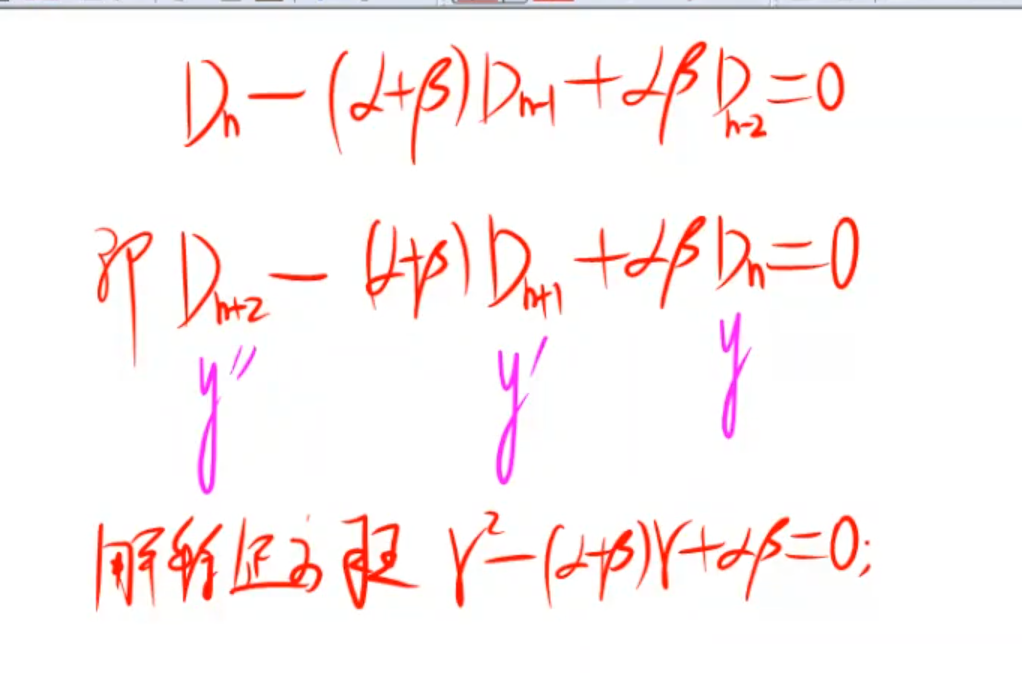 Dₙ − (α+β)Dₙ₋₁ + αβDₙ₋₂ = 0
即 Dₙ₊₂ − (α+β)Dₙ₊₁ + αβDₙ = 0
y'' y' y
解特征方程 r² − (α+β)r + αβ = 0;